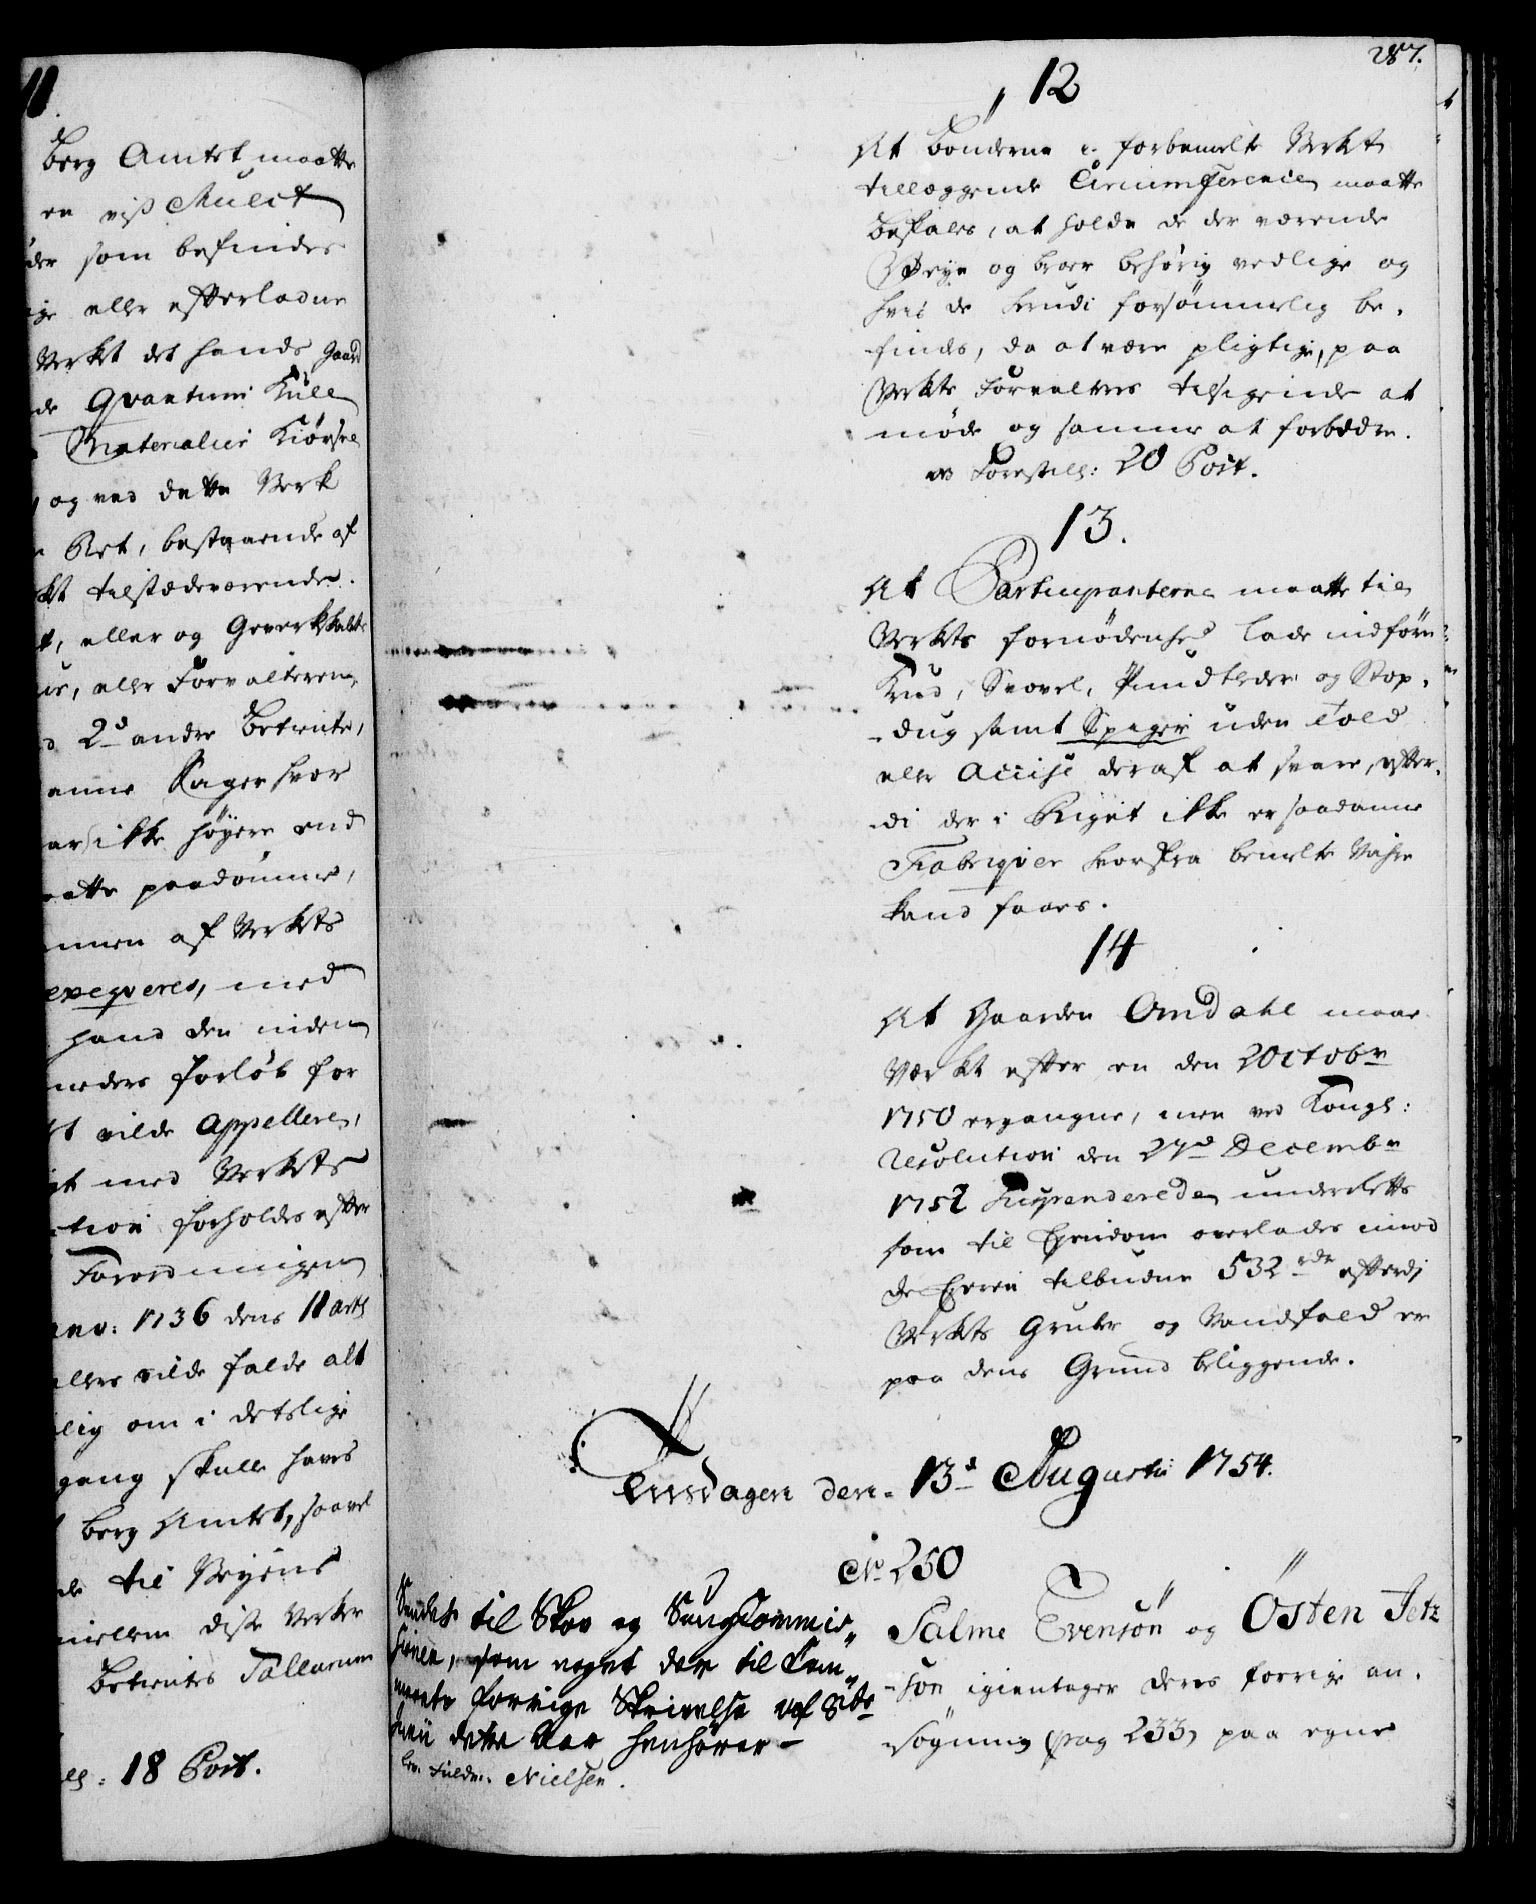 11.
berg Amtet maatte
en viss Mulct
der som befindes
ige eller efterladne
Verket det hands gaard
de Qvantum Kull
Materialier Kiörsel
og ved dette Verk
Ret, bestaaende af
ket tilstædeværende
t, eller og Gewerkskabets
eller Forvalteren,
2de andre Betiente,
Sager hvor
ar ikke höyere end
paadömme,
af Verkets
exeqveres, med
hand den inden
forlöb for
vilde Appellere,
med Verkets
forholdes efter
Forordningen
1736 dens 11 art
vilde falde alt
om i deslige
gang skulle haves
berg Amtet, saavel
til Veyens
disse Verker
Betientes
18 Post.
287.
12
At bönderne i forbemelte Verket
tilleggende Circumference maatte
befales, at holde de der værende
Veye og broer behörig vedlige og
hvis de herudi forsömmelig be-
findes, da at være pligtige, paa
Verkets Forvalteres tilsigende at
möde og samme at forbedre.
vid Forestill: 20 Post.
13.
At Participanterne maatte til
Verkets fornödenhed lade indföre
Krud, Svovel, Pundleder og Stop-
-dug samt Spiger uden Told
eller Accise deraf at svare, efter-
-di der i Riget ikke er saadanne
Fabriqver hvorfra bemelte Vahre
kand faaes.
14
At Gaarden Omdahl maae
Verket efter en den 2 Octobr
1750 ergangne, men ved Kongl:
Resolution den 27d Decembr
1751 Suspenderede
som til Eyendom overlades imod
de Eyeren tilbudne 532 rdr efterdi
Verkets Grube og Vandfald er
paa dens Grund beliggende.
Tiisdagen den 13d Augusti 1754.
No 250
Sendes til Skov og Saug Commis-
sionen, som noget der til Cam-
merets forrige Skrivelse af
dette har henhörer -
Nielsen.
Salme Evensön og Östen Jetz
-sön igientager deres forrige an-
-sögning (pag 233) paa egne